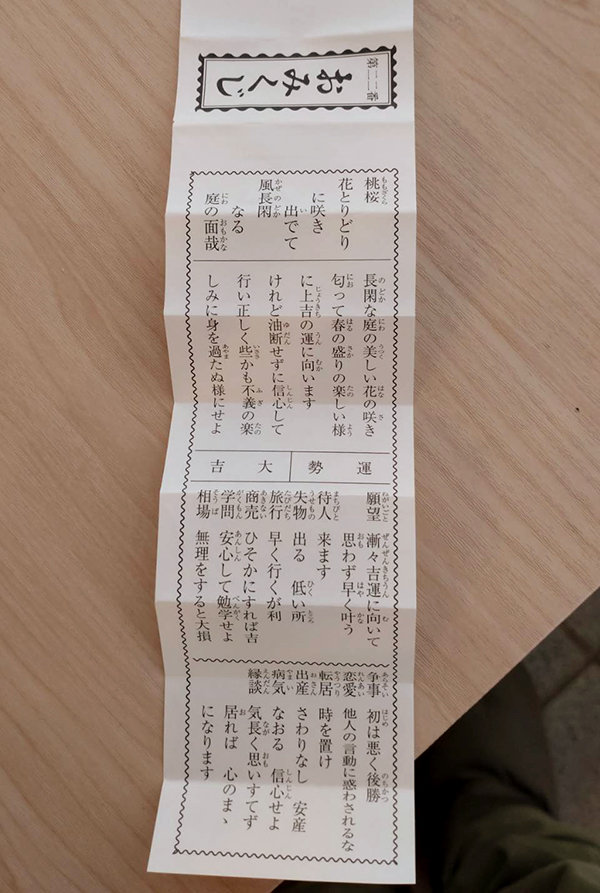 第二二番
おみくじ
桃桜
花とりどり
に咲き
出でて
風長閑
なる
庭の面哉
長閑な庭の美しい花の咲き
匂って春の盛りの楽しい様
に上吉の運に向います
けれど油断せずに信心して
行い正しく些かも不義の楽
しみに身を過たぬ様にせよ
運勢
大吉
願望 漸々吉運に向いて
思わず早く叶う
待人 来ます
失物 出る 低い所
旅行 早く行くが利
商売 ひそかにすれば吉
学問 安心して勉学せよ
相場 無理をすると大損
争事 初は悪く後勝
恋愛 他人の言動に惑わされるな
転居 時を置け
出産 さわりなし 安産
病気 なおる 信心せよ
縁談 気長く思いすてず
居れば 心のまゝ
になります